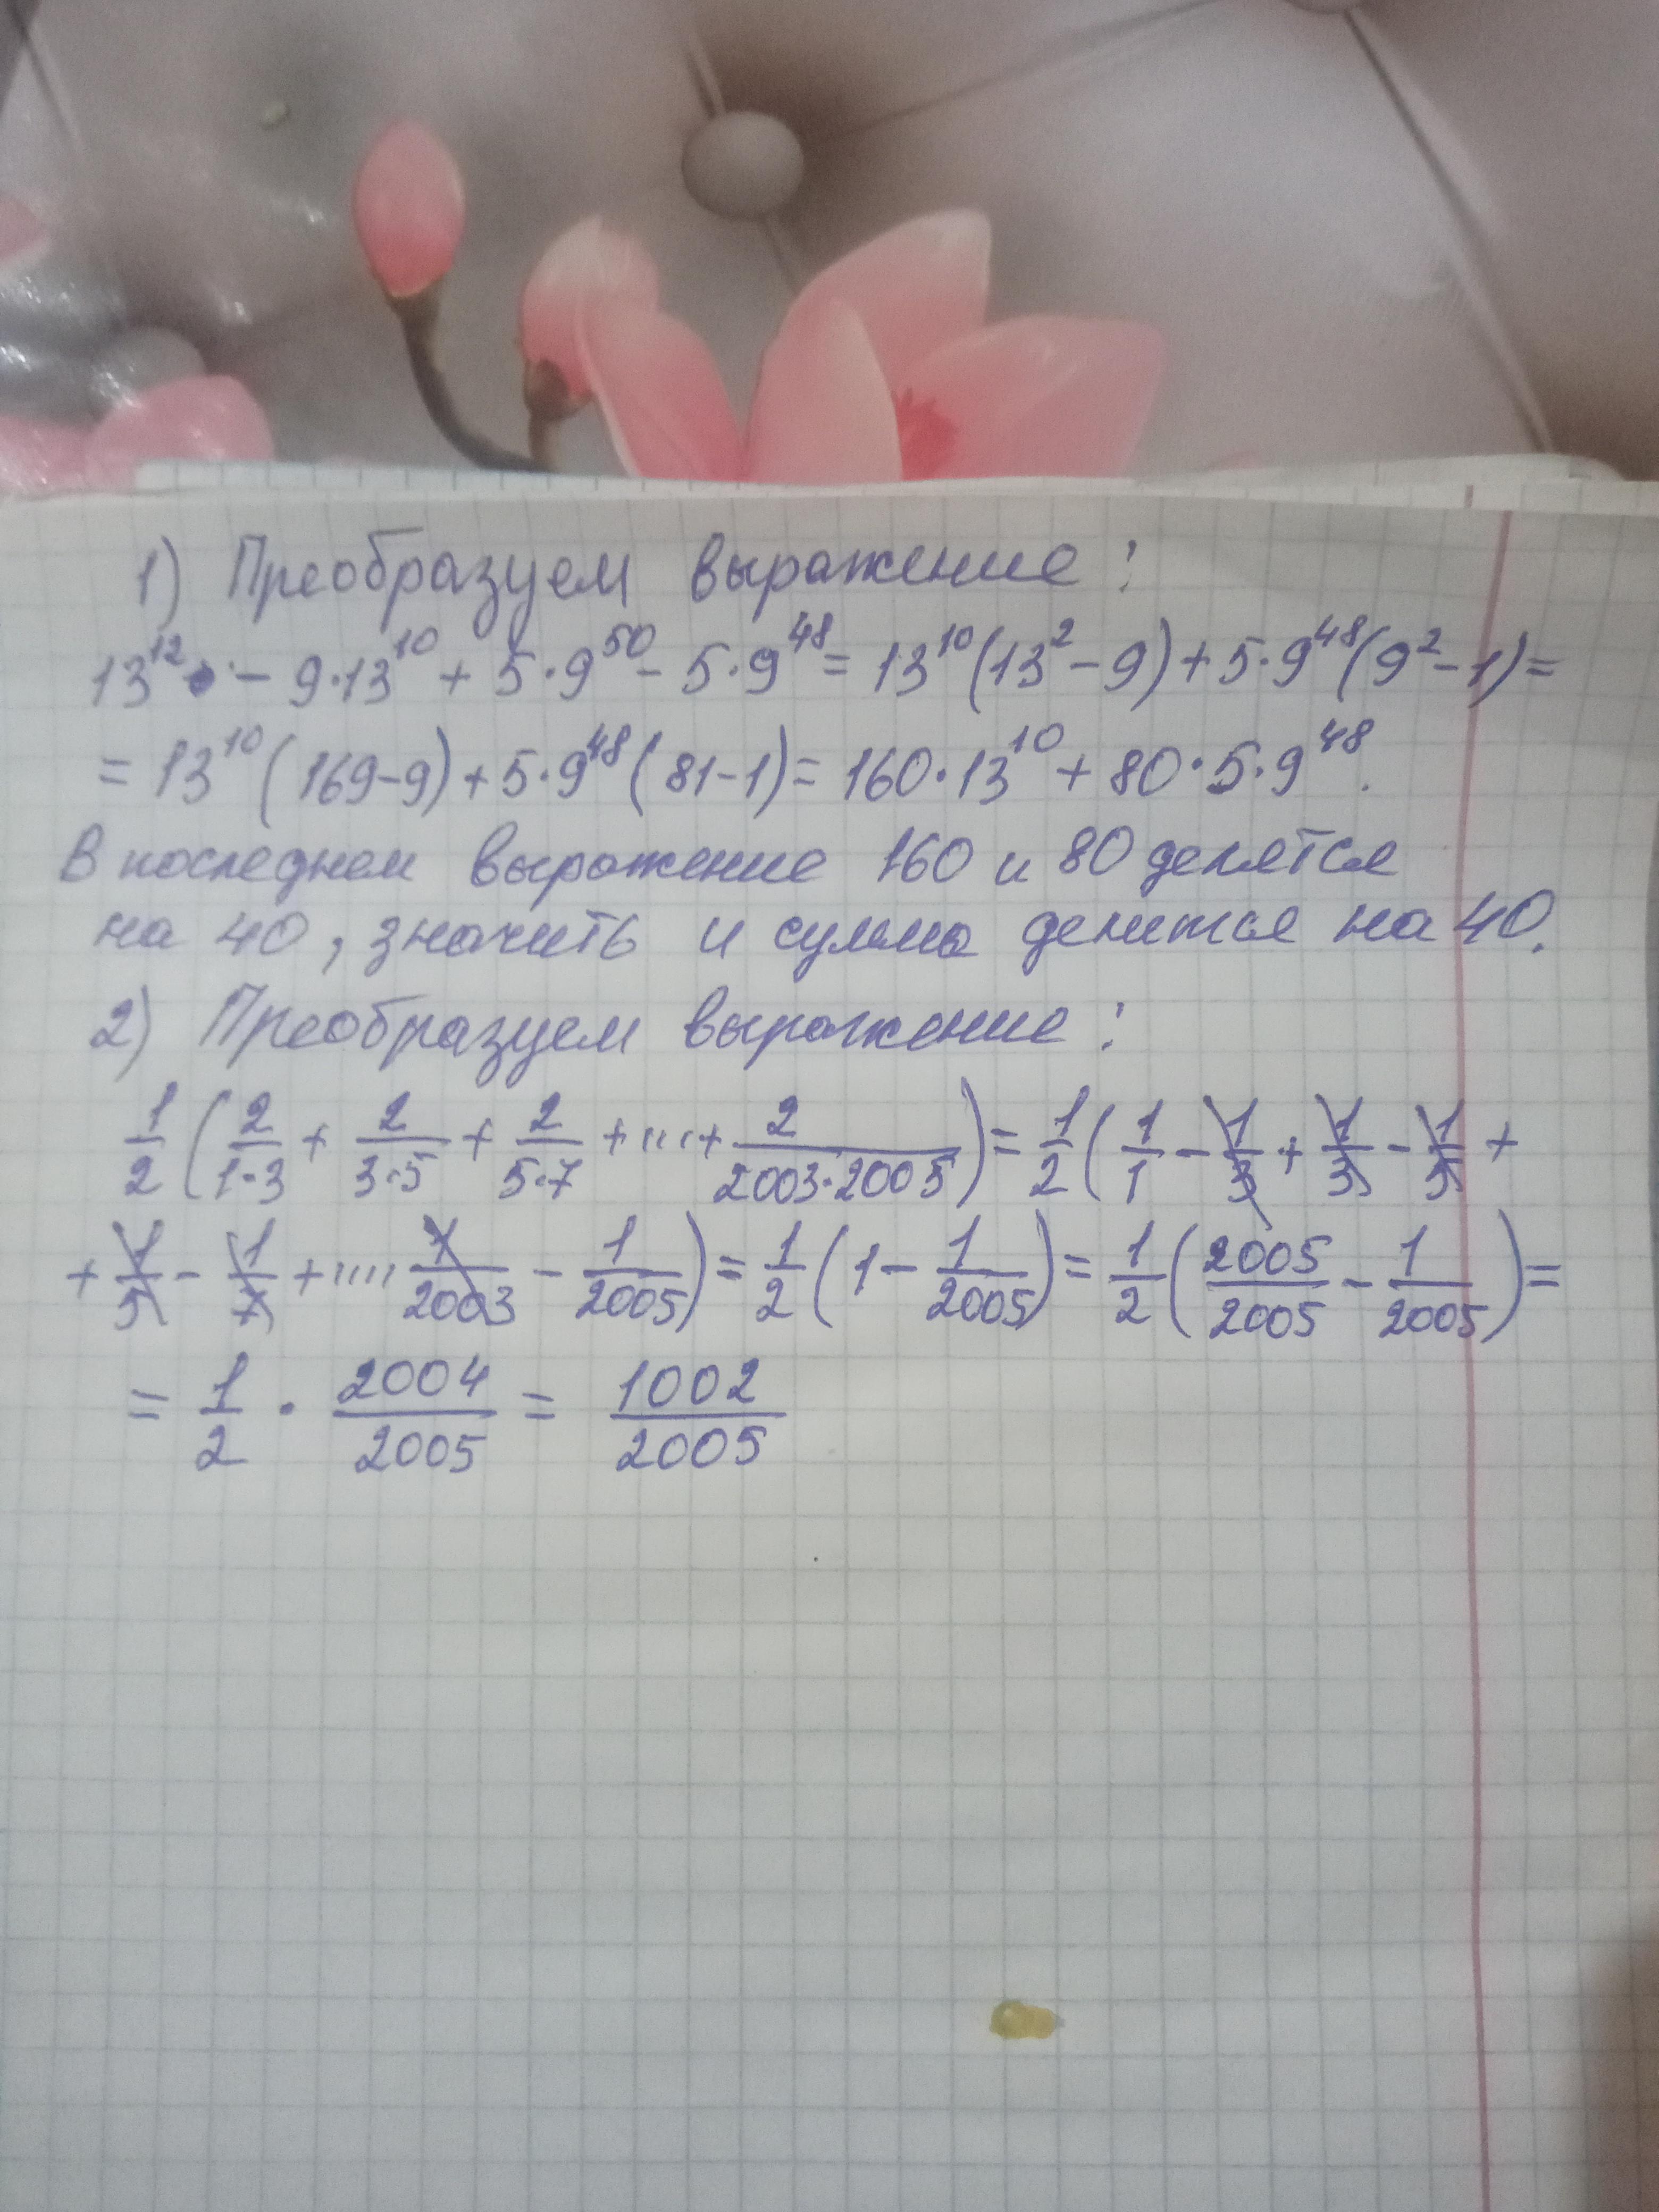 1) Преобразуем выражение:
13¹² - 9·13¹⁰ + 5·9⁵⁰ - 5·9⁴⁸ = 13¹⁰(13² - 9) + 5·9⁴⁸(9² - 1) =
= 13¹⁰(169-9) + 5·9⁴⁸(81-1) = 160·13¹⁰ + 80·5·9⁴⁸.
В последнем выражение 160 и 80 делятся
на 40, значить и сумма делится на 40.
2) Преобразуем выражение:
1/2 (2/(1·3) + 2/(3·5) + 2/(5·7) + .... + 2/(2003·2005)) = 1/2 (1/1 - 1/3 + 1/3 - 1/5 +
+ 1/5 - 1/7 + .... 1/2003 - 1/2005) = 1/2 (1 - 1/2005) = 1/2 (2005/2005 - 1/2005) =
= 1/2 · 2004/2005 = 1002/2005